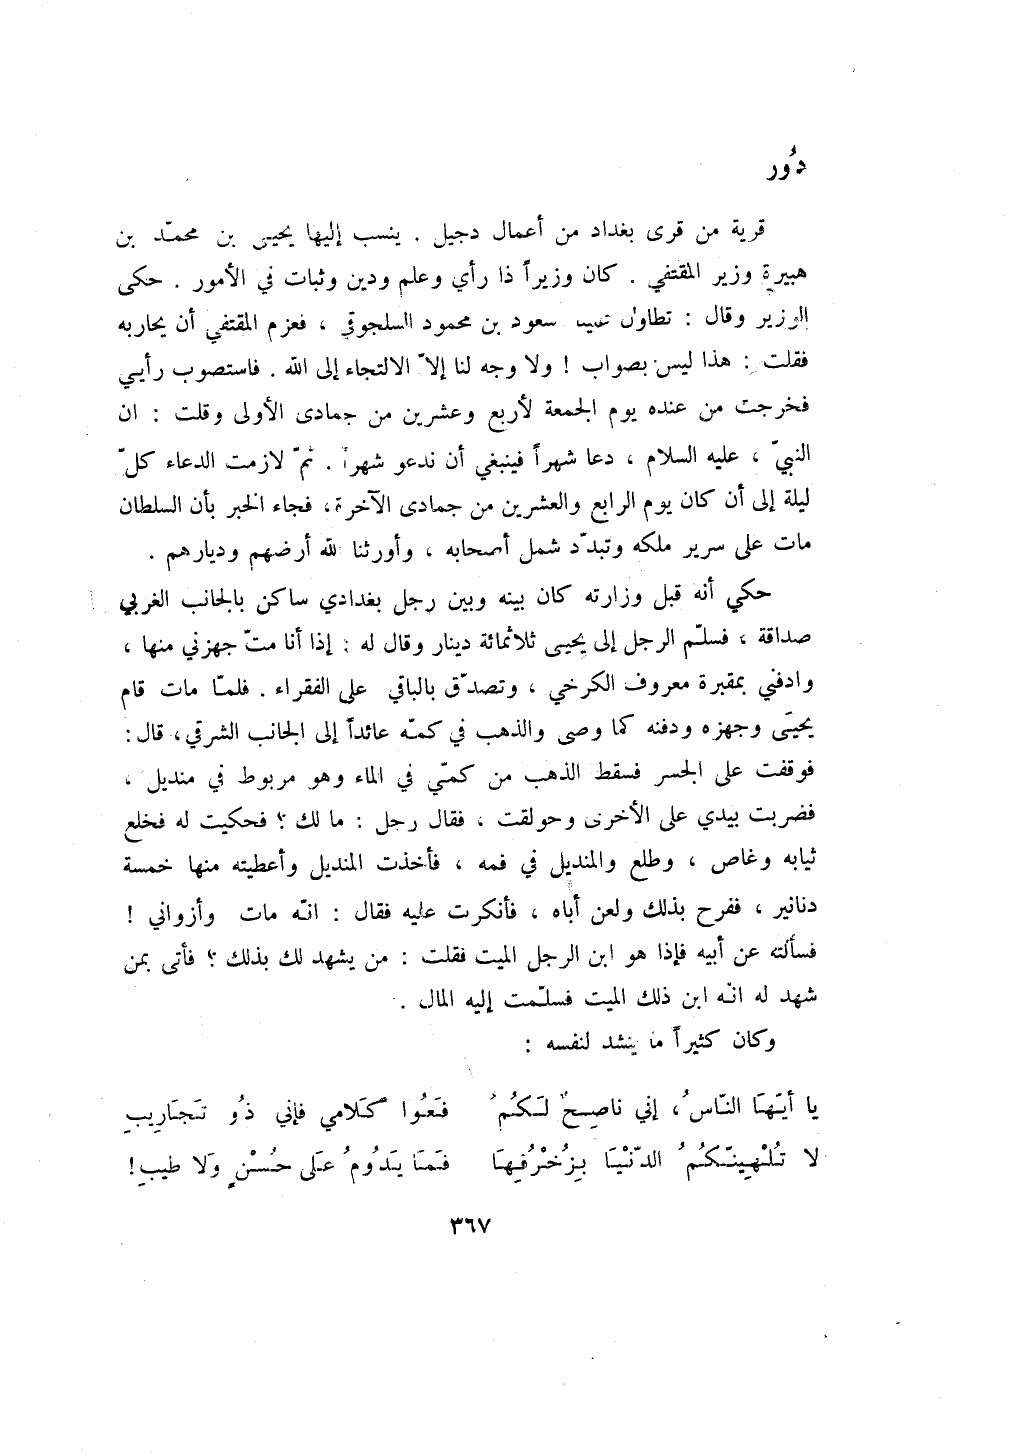 دُور
قرية من قرى بغداد من أعمال دجيل . ينسب إليها يحيى بن محمّد بن
هبيرة وزير المقتفي . كان وزيراً ذا رأي وعلم ودين وثبات في الأمور . حكى
الوزير وقال : تطاول سعود بن محمود السلجوقي ، فعزم المقتفي أن يحاربه
فقلت : هذا ليس بصواب ! ولا وجه لنا إلاّ الالتجاء إلى الله . فاستصوب رأيي
فخرجت من عنده يوم الجمعة لأربع وعشرين من جمادى الأولى وقلت : ان
النبيّ ، عليه السلام ، دعا شهراً فينبغي أن ندعو شهراً . ثمّ لازمت الدعاء كلّ
ليلة إلى أن كان يوم الرابع والعشرين من جمادى الآخرة ، فجاء الخبر بأن السلطان
مات على سرير ملكه وتبدّد شمل أصحابه ، وأورثنا الله أرضهم وديارهم .
حكي أنه قبل وزارته كان بينه وبين رجل بغدادي ساكن بالجانب الغربي
صداقة ، فسلّم الرجل إلى يحيى ثلاثمائة دينار وقال له : إذا أنا متّ جهزني منها ،
وادفني بمقبرة معروف الكرخي ، وتصدّق بالباقي على الفقراء . فلمّا مات قام
يحيَى وجهزه ودفنه كما وصى والذهب في كمّه عائداً إلى الجانب الشرقي ، قال :
فوقفت على الجسر فسقط الذهب من كمّي في الماء وهو مربوط في منديل ،
فضربت بيدي على الأخرى وحولقت ، فقال رجل : ما لك ؟ فحكيت له فخلع
ثيابه وغاص ، وطلع والمنديل في فمه ، فأخذت المنديل وأعطيته منها خمسة
دنانير ، ففرح بذلك ولعن أباه ، فأنكرت عليه فقال : انّه مات وأزواني !
فسألته عن أبيه فإذا هو ابن الرجل الميت فقلت : من يشهد لك بذلك ؟ فأتى بمن
شهد له انّه ابن ذلك الميت فسلّمت إليه المال .
وكان كثيراً ما ينشد لنفسه :
يا أيّهَا النّاسُ ، إني ناصِحٌ لَكُمُ فَعُوا كَلامي فإني ذُو تَجَارِيبِ
لا تُلْهِيَنّكُمُ الدّنْيَا بِزُخْرُفِهَا فَمَا يَدُومُ عَلى حُسْنٍ وَلا طيبِ !
٣٦٧